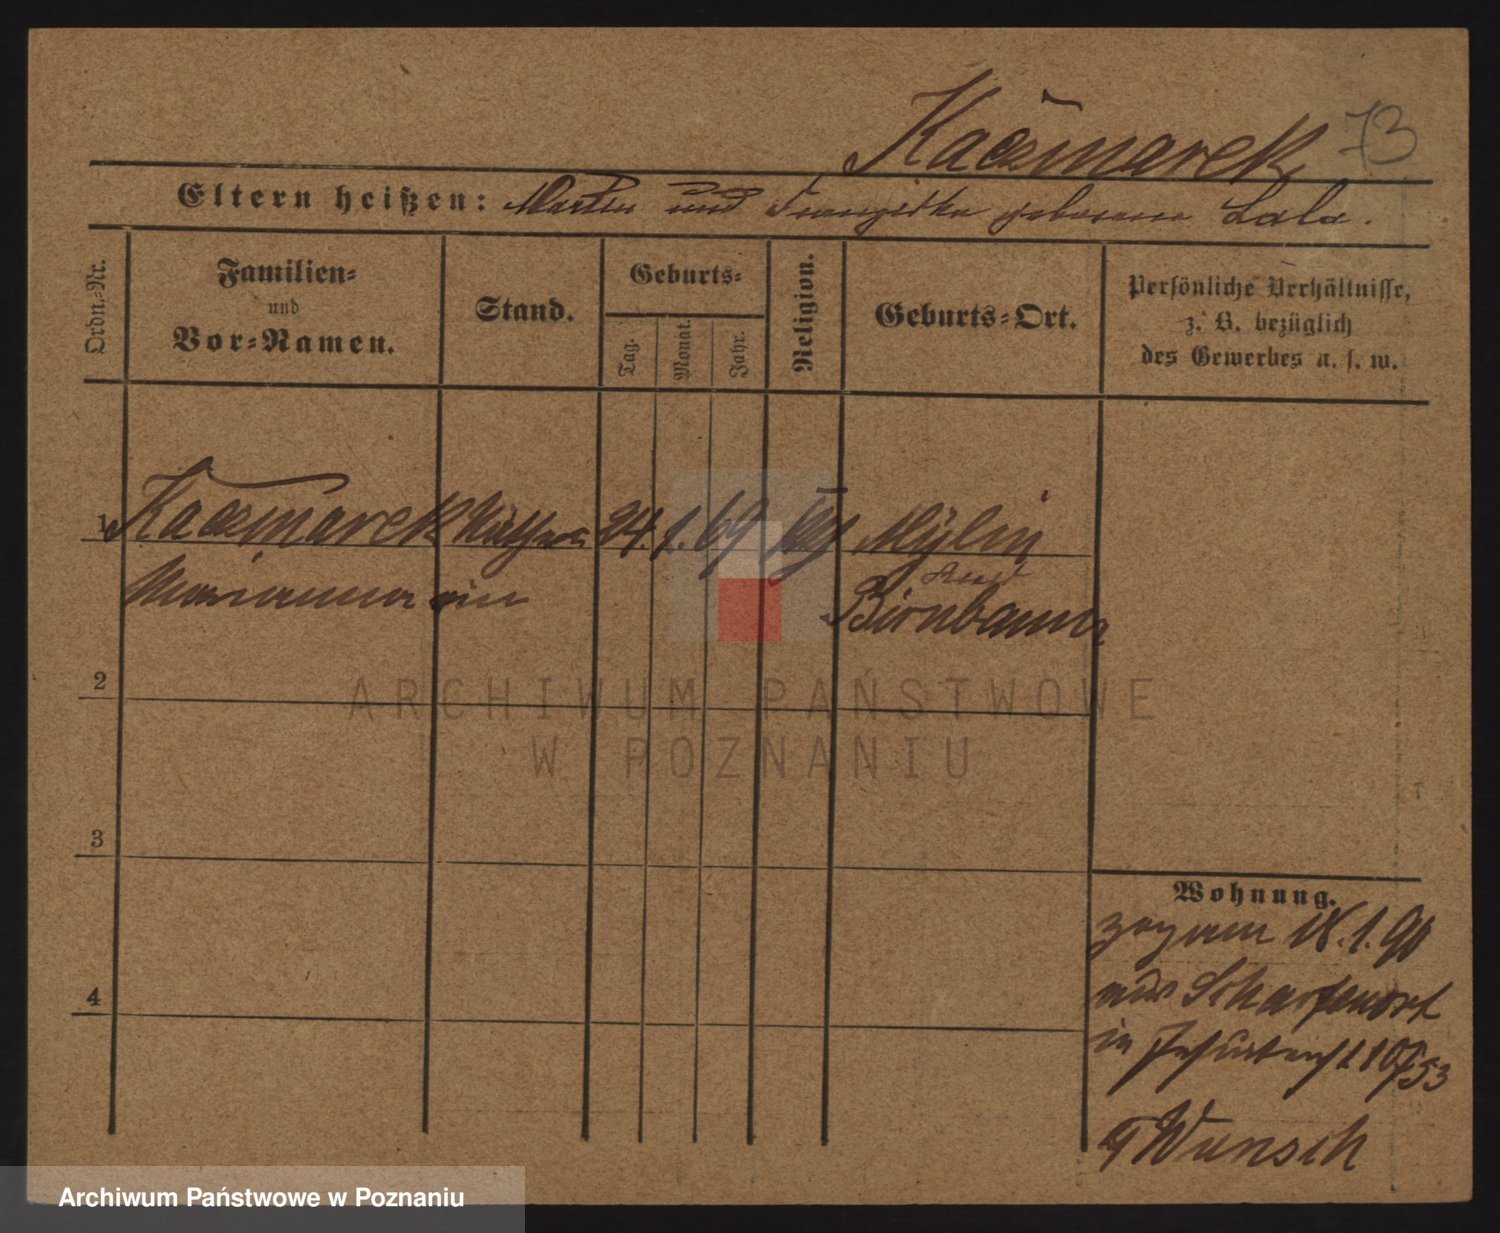 Kaczmarek 73
Eltern heißen: Martin und Franziska geborene Lala.
Ordn.-Nr.
Familien- und Vor-Namen.
Stand.
Geburts-
Tag.
Monat.
Jahr.
Religion.
Geburts-Ort.
Persönliche Verhältnisse, z. B. bezüglich des Gewerbes u. s. w.
1 Kaczmarek 24. 1. 69 Mylin
Marianna
Birnbaum
2
3
4
Wohnung.
zog am 18. 1. 90
aus Scharfenort
in
Wunsch
ARCHIWUM PAŃSTWOWE
W POZNANIU
Archiwum Państwowe w Poznaniu